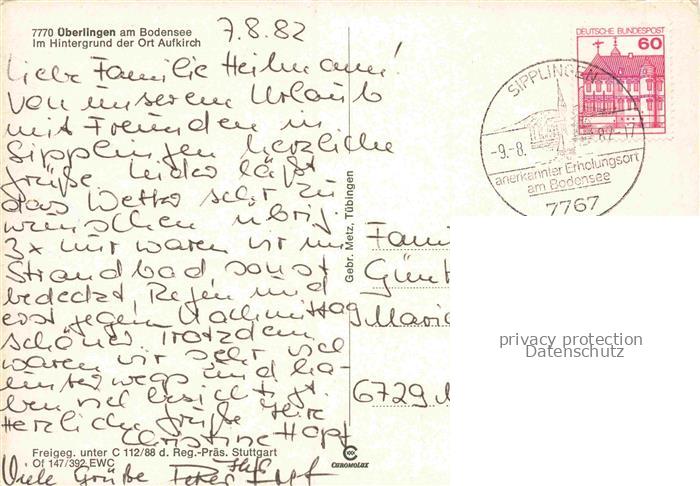 7770 Überlingen am Bodensee
Im Hintergrund der Ort Aufkirch
7.8.82
Liebe Familie Heilmann!
Von unserem Urlaub
mit Freunden in
Sipplingen herzliche
Grüße. Leider läßt
das Wetter sehr zu
wünschen übrig.
3x nur waren wir im
Strandbad sonst
bedeckt, Regen und
erst gegen Nachmittag
schöner. Trotzdem
waren wir sehr viel
unterwegs und ha-
ben viel besichtigt.
Herzliche Grüße Ihre
Christine Hopf
Freigeg. unter C 112/88 d. Reg.-Präs. Stuttgart
Of 147/392 EWC
Viele Grüße Peter Hopf
Gebr. Metz, Tübingen
CHROMOLUX
DEUTSCHE BUNDESPOST
60
SIPPLINGEN
-9.-8. 82-17
anerkannter Erholungsort
am Bodensee
7767
Fami
Günt
Maria
6729
privacy protection
Datenschutz